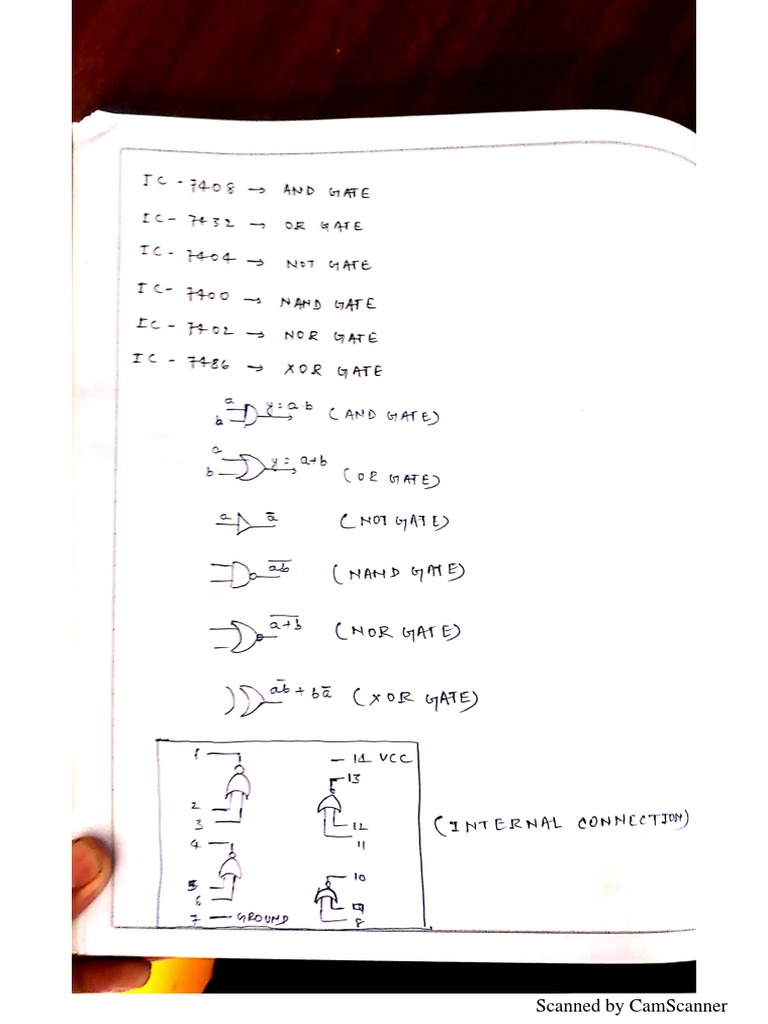 IC - 7408 → AND GATE
IC - 7432 → OR GATE
IC - 7404 → NOT GATE
IC - 7400 → NAND GATE
IC - 7402 → NOR GATE
IC - 7486 → XOR GATE
a
b
y = a·b (AND GATE)
a
b
y = a+b (OR GATE)
a a̅ (NOT GATE)
a̅b̅ (NAND GATE)
a̅+̅b̅ (NOR GATE)
ab̅ + ba̅ (XOR GATE)
1
2
3
4
5
6
7 — GROUND
— 14 VCC
13
12
11
10
9
8
(INTERNAL CONNECTION)
Scanned by CamScanner